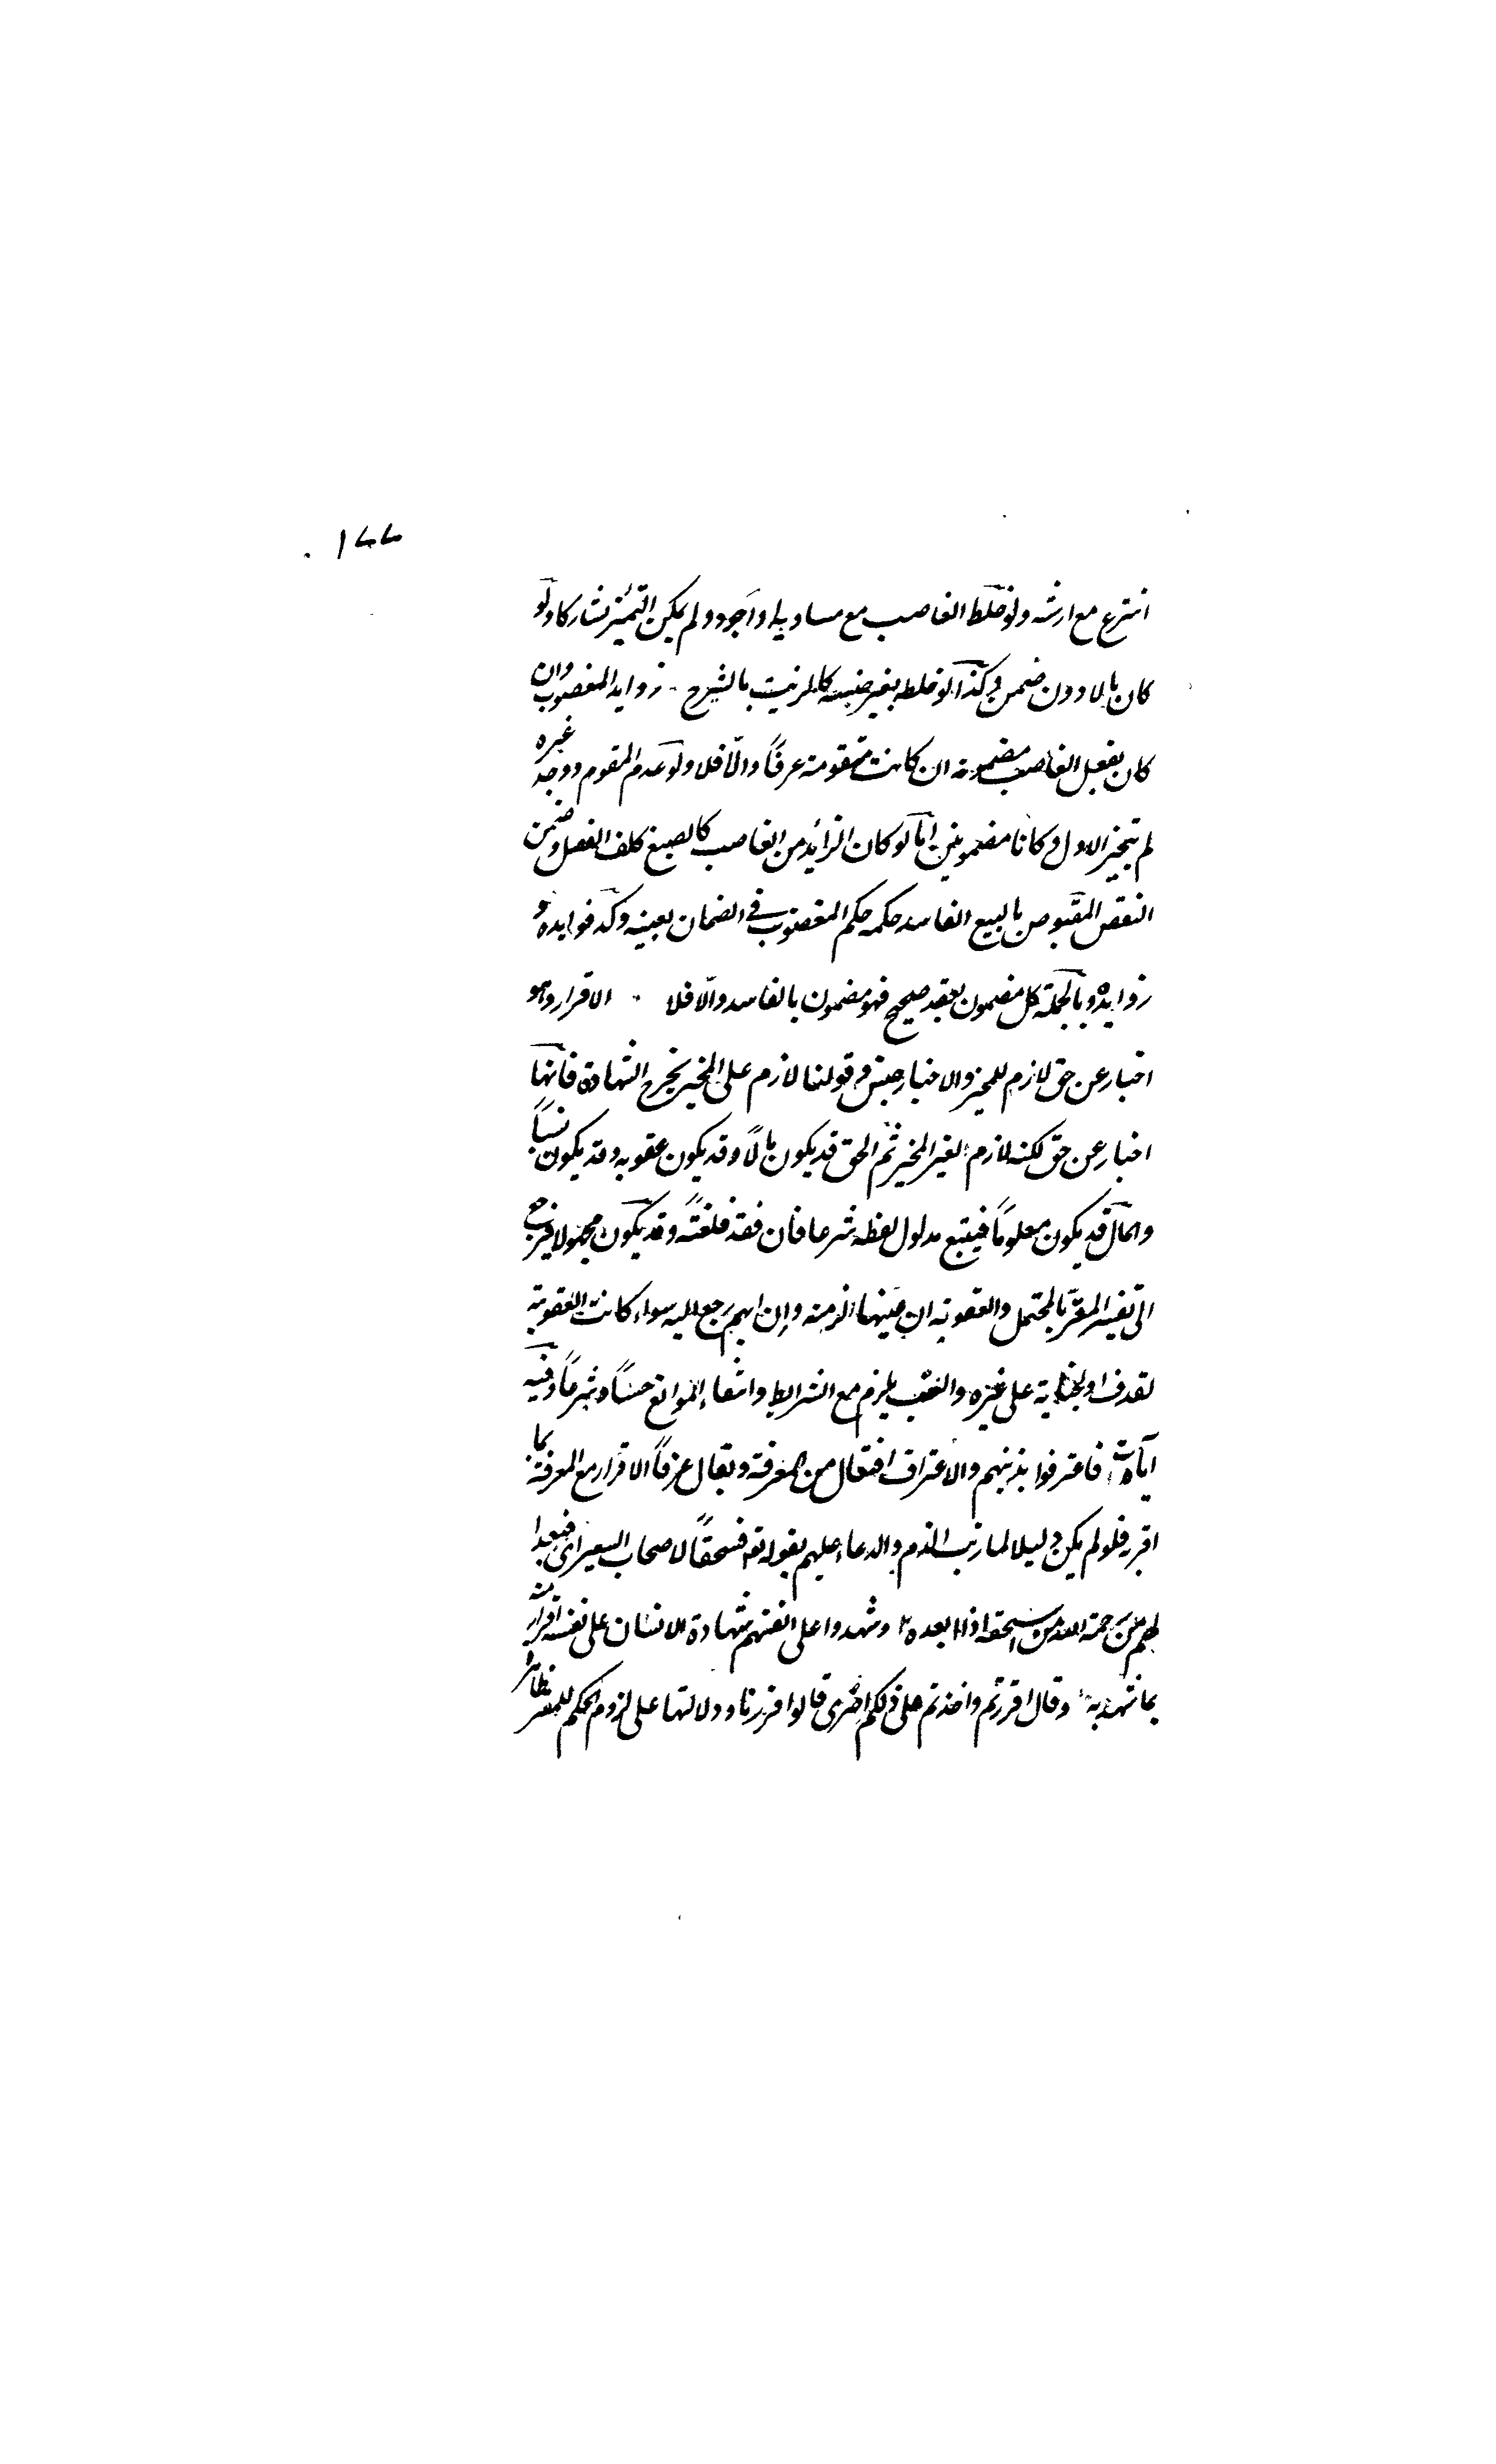 ١٧٧
انتزع مع ارشه ولو خلط الغاصب مع مساويه او اجود ولم يمكن التميز تشاركا ولو
كان بالادون ضمن وكذا لو خلطه بغير جنسه كالزيت بالشيرج زوايد المغصوب وان
كان بفعل الغاصب مضمونة ان كانت متقومة عرفاً والّا فلا ولو عدم المقوم ووجد غيره
لم ينجبر الاول وكانا مضمونين امّا لو كان الزائد من الغاصب كالصبغ كلف الفصل وضمن
النقص المقبوض بالبيع الفاسد حكمه حكم المغصوب في الضمان بعينه وكذا فوايده و
زوايده وبالجملة كل مضمون بعقد صحيح فهو مضمون بالفاسد والّا فلا الاقرار وهو
اخبار عن حق لازم للمخبر والاخبار جنس وقولنا لازم على المخبر يخرج الشهادة فانها
اخبار عن حق لكنه لازم لغير المخبر ثم الحق قد يكون مالاً وقد يكون عقوبه وقد يكون نسباً
والمال قد يكون معلوماً فيتبع مدلول لفظه شرعا فان فقد فلغتة وقد يكون مجهولا فيرجع
الى تفسير المقرّ بالمحتمل والعقوبة ان عينها الزمته وان ابهم رجع اليه سواء كانت العقوبة
لقذف او لجناية على غيره والنسب يلزم مع الشرايط وانتفاء الموانع حسّاً وشرعاً وفيه
آيات فاعترفوا بذنبهم والاعتراف افتعال من المعرفة ويقال عرفاً الاقرار مع المعرفة بما
اقر به فلو لم يكن دليلا لما رتب الذم والدعاء عليهم بقوله تعه فسحقاً لاصحاب السعير اى فبعدا
لهم من رحمة الله من اسحقه اذا ابعده وشهدوا على انفسهم شهادة الانسان على نفسه اقرار منه
بما شهد به وقال اقررتم واخذتم على ذلكم اصرى قالوا اقررنا ودلالتها على لزوم الحكم للمقر ظاهرة